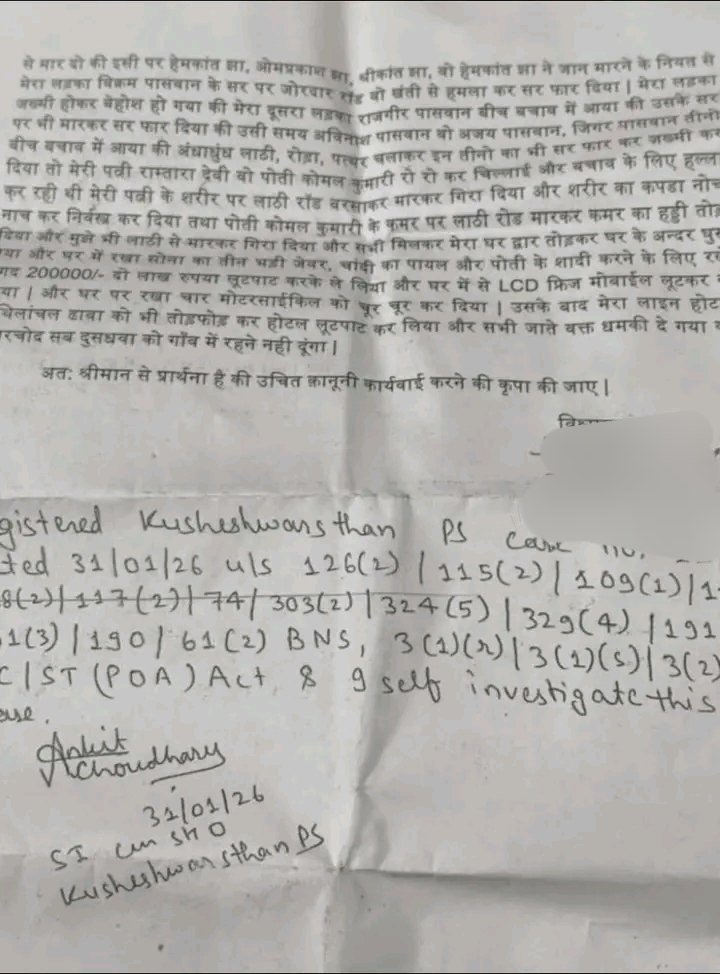 से मार दो की इसी पर हेमकांत झा, ओमप्रकाश झा, श्रीकांत झा, वो हेमकांत झा ने जान मारने के नियत से
मेरा लड़का विक्रम पासवान के सर पर जोरदार रॉड वो खंती से हमला कर सर फार दिया | मेरा लडका
जख्मी होकर बेहोश हो गया की मेरा दूसरा लड़का राजगीर पासवान बीच बचाव में आया की उसके सर
पर भी मारकर सर फार दिया की उसी समय अविनाश पासवान वो अजय पासवान, जिगर पासवान तीनो
बीच बचाव में आया की अंधाधुंध लाठी, रोड़ा, पत्थर चलाकर इन तीनो का भी सर फार कर जख्मी कर
दिया तो मेरी पत्नी रामतारा देवी वो पोती कोमल कुमारी रो रो कर चिल्लाई और बचाव के लिए हल्ला
कर रही थी मेरी पत्नी के शरीर पर लाठी रॉड बरसाकर मारकर गिरा दिया और शरीर का कपडा नोच
नाच कर निर्वस्त्र कर दिया तथा पोती कोमल कुमारी के कमर पर लाठी रोड मारकर कमर का हड्डी तोड़
दिया और मुझे भी लाठी से मारकर गिरा दिया और सभी मिलकर मेरा घर द्वार तोड़कर घर के अन्दर घुस
या और घर में रखा सोना का तीन भड़ी जेवर, चांदी का पायल और पोती के शादी करने के लिए
गद 200000/- दो लाख रुपया लूटपाट करके ले लिया और घर में से LCD फ्रिज मोबाईल लूटकर
या | और घर पर रखा चार मोटरसाईकिल को चूर चूर कर दिया | उसके बाद मेरा लाइन होट
ढावा को भी तोड़फोड़ कर होटल लूटपाट कर लिया और सभी जाते वक्त धमकी दे गया
रचोद सब दुसधवा को गाँव में रहने नही दूंगा |
अत: श्रीमान से प्रार्थना है की उचित क़ानूनी कार्यवाई करने की कृपा की जाए |
gistered Kusheshwarsthan PS Case no.
ted 31/01/26 u/s 126(2) | 115(2) | 109(1) | 1
8(2) | 117(2) | 74 | 303(2) | 324(5) | 329(4) | 191
1(3) | 190 | 61(2) BNS, 3(1)(r) | 3(1)(s) | 3(2)
C/ST (POA) Act & I self investigate this
ase.
Ankit Choudhary
31/01/26
SI cum SHO
Kusheshwarsthan PS